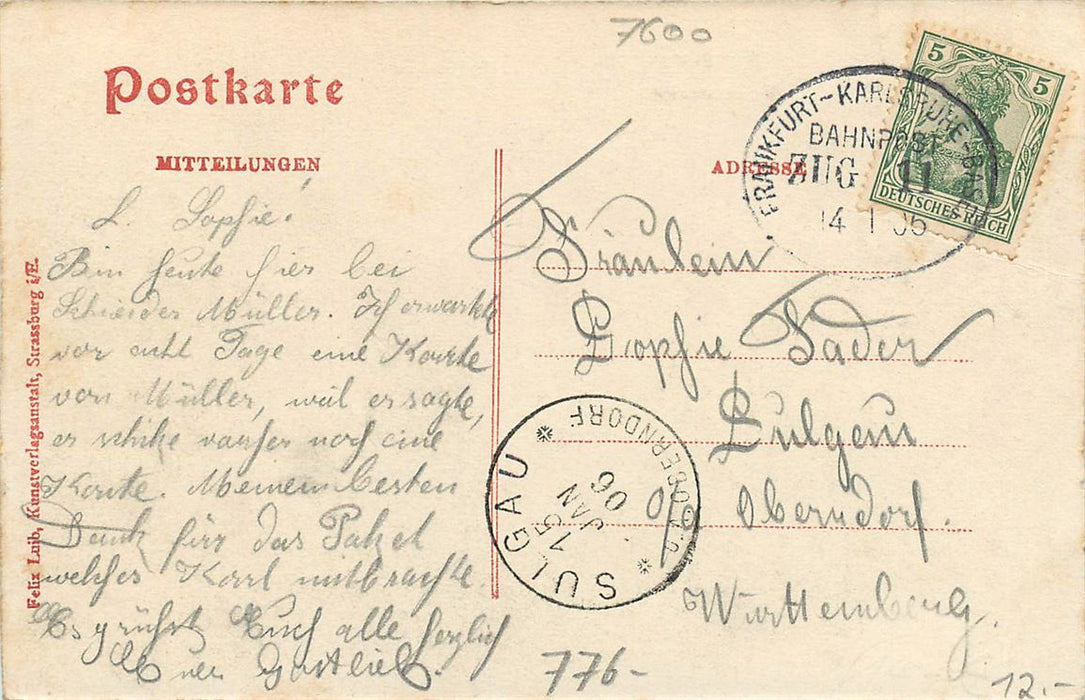 7600
Postkarte
MITTEILUNGEN
ADRESSE
FRANKFURT-KARLSRUHE-BASEL
BAHNPOST
ZUG 11
14 1 06
5 5
DEUTSCHES REICH
L. Sophie!
Bin heute hier bei
Schneider Müller. Ich erwarkte
vor acht Tage eine Karte
von Müller, weil er sagte,
er schike vorher noch eine
Karte. Meinem besten
Dank für das Paket
welches Karl mitbrachte.
Es grüßt Euch alle herzlich
Euer Gottlieb.
Fräulein
Sophie Fader
Sulgau
O/A Oberndorf.
Württemberg.
SULGAU
OBERNDORF
15
JAN
06
776-
12.-
Felix Luib, Kunstverlagsanstalt, Strassburg i/E.